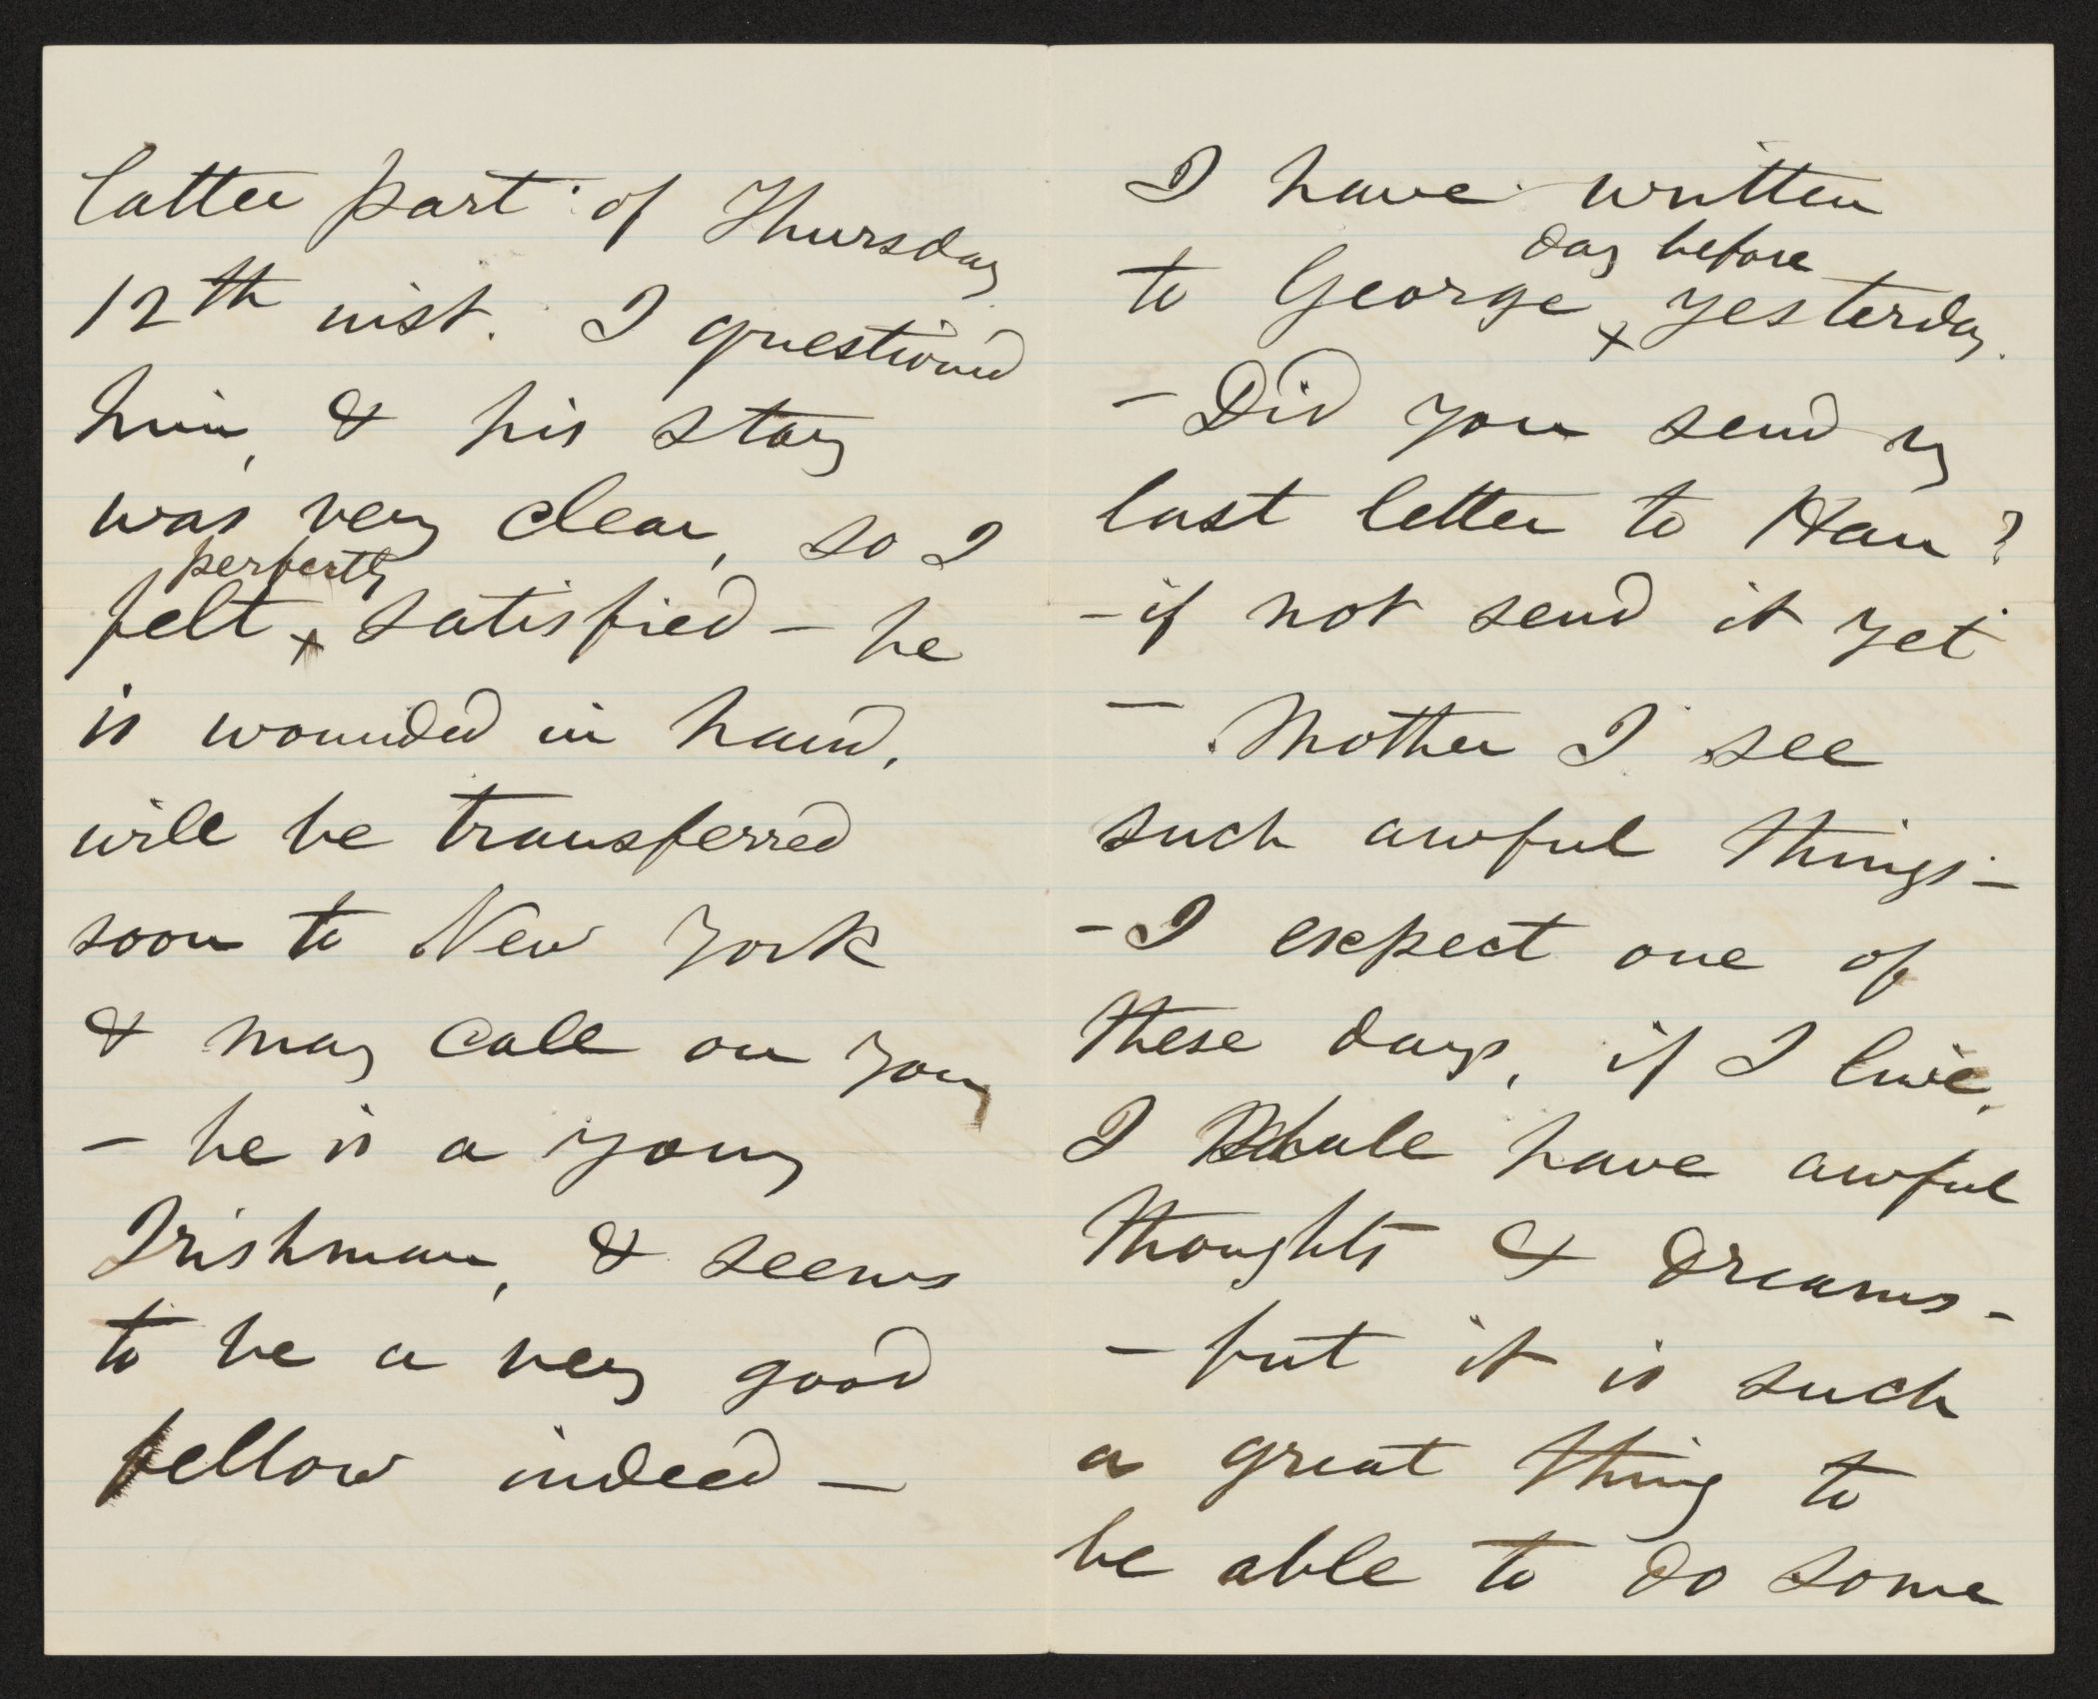 latter part of Thursday
12th inst. I questioned
him, & his story
was very clear, so I
perfectly
felt ^ satisfied – he
is wounded in hand,
will be transferred
soon to New York
& may call on you
– he is a young
Irishman, & seems
to be a very good
fellow indeed –
I have written
day before
to George ^ yesterday.
– Did you send my
last letter to Han?
– if not send it yet
– Mother I see
such awful things –
– I expect one of
these days, if I live,
I shall have awful
thoughts & dreams –
– but it is such
a great thing to
be able to do some